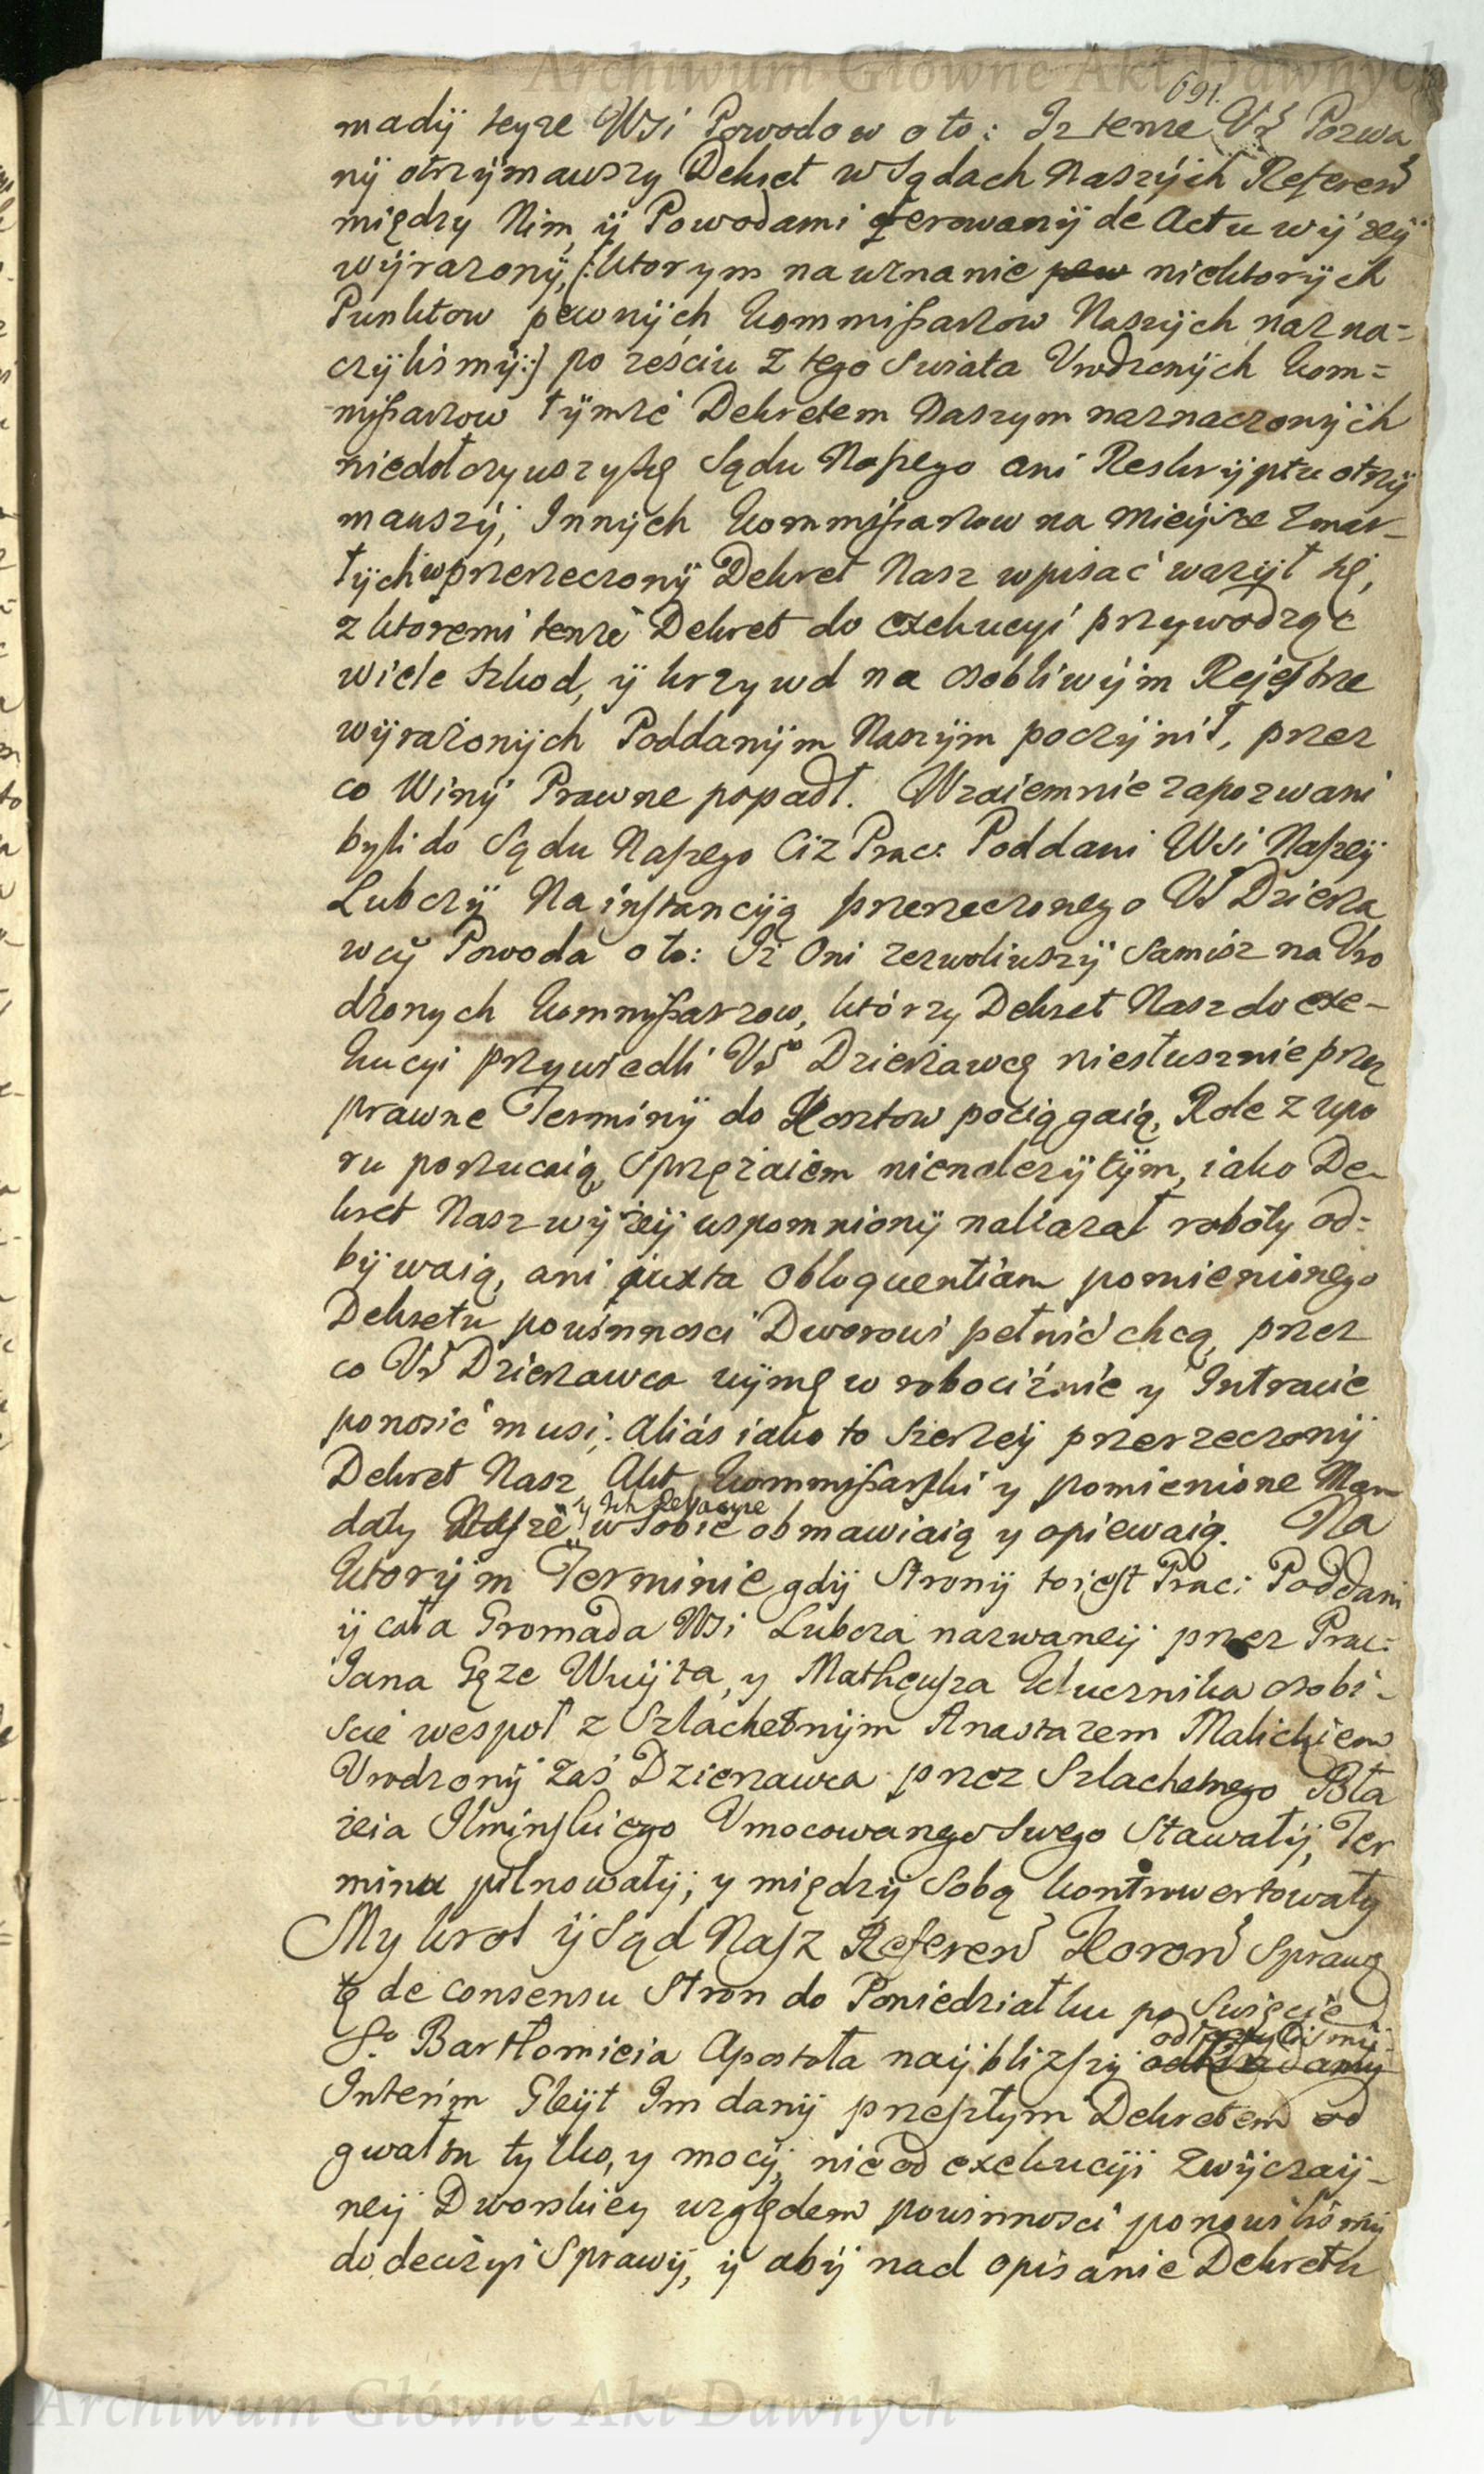 Archiwum Główne Akt Dawnych
691.
madÿ teyze Wsi Powodow o to: Iz tenze Vr Pozwa
nÿ otrzÿmawszy Dekret w Sądach Naszÿch Referen
między Nim, ÿ Powodami ferowanÿ de Actu wÿzeÿ
wÿrazonÿ, (:ktorym na uznanie pew niektorÿch
Punktow pewnÿch Kommißarzow Naszÿch nazna=
czÿlismÿ:) po ześciu z tego Swiata Vrodzonÿch Kom=
mißarzow tÿmże Dekretem Naszym naznaczonÿch
niedołozywszy się Sądu Naszego ani Reskrÿptu otrzÿ
mawszÿ, Innÿch Kommißarzow na mieÿsce zmar-
łÿch w przerzeczonÿ Dekret Nasz wpisać wazÿł się,
z ktoremi tenże Dekret do exekucyi przywodząc
wiele szkod, ÿ krzywd na osobliwÿm Rejestrze
wÿrażonÿch Poddanÿm Naszÿm poczÿnił, przez
co Winÿ Prawne popadł. Wzaiemnie zapozwani
byli do Sądu Naszego Ciz Prac: Poddani Wsi Naszeÿ
Lubczÿ Na instancÿą przerzeczonego Vr Dzierza
wcÿ Powoda o to: Iż Oni zezwoliwszÿ samisz na Vro
dzonych Kommißarzow, którzy Dekret Nasz do exe-
kucyi przywiedli Vro Dzierżawcę niesłusznie przez
prawne Terminÿ do Kosztow pociągaią, Role z upo
ru porzucaią, Sprzężaiem nienalezÿtÿm, iako De-
kret Nasz wÿżeÿ wspomnionÿ nakazał roboty od=
bÿwaią, ani juxta obloquentiam pomienionego
Dekretu powinnosci Dworowi pełnić chcą, przez
co Vr Dzierzawca uÿmę w robociźnie y Intracie
ponosić musi; aliás iako to szerzeÿ przerzeczonÿ
Dekret Nasz, Akt Kommißarski y pomienione Man
y Ich Relacyie
daty Nasze w Sobie obmawiaią y opiewaią. Na
ktorÿm Terminie gdÿ Stronÿ toiest Prac: Poddani
ÿ cała Gromada Wsi Lubcza nazwaneÿ przez Prac:
Jana Gęze Wuÿta, y Matheusza Klucznika osobi-
scie wespoł z Szlachetnÿm Anastazem Malickiem
Vrodzonÿ zaś Dzierzawca przez Szlachetnego Bła
zeia Ilminskiego Vmocowanego Swego Stawałÿ, Ter
minu pilnowałÿ, y międzÿ Sobą kontrowertowały
My krol ÿ Sąd Nasz Referen Koron Sprawę
tę de consensu Stron do Poniedziałku po Swięcie
odłozylismÿ
So Bartłomieia Apostoła naÿblizszÿ
Interim Gleÿt Im danÿ przeszłym Dekretem od
gwałtu tylko, y mocÿ, nie od exekucÿi zwÿczaÿ-
neÿ Dworskiey względem powinnosci ponowilismÿ
do decizyi Sprawÿ, ÿ abÿ nad opisanie Dekretu
Archiwum Główne Akt Dawnych